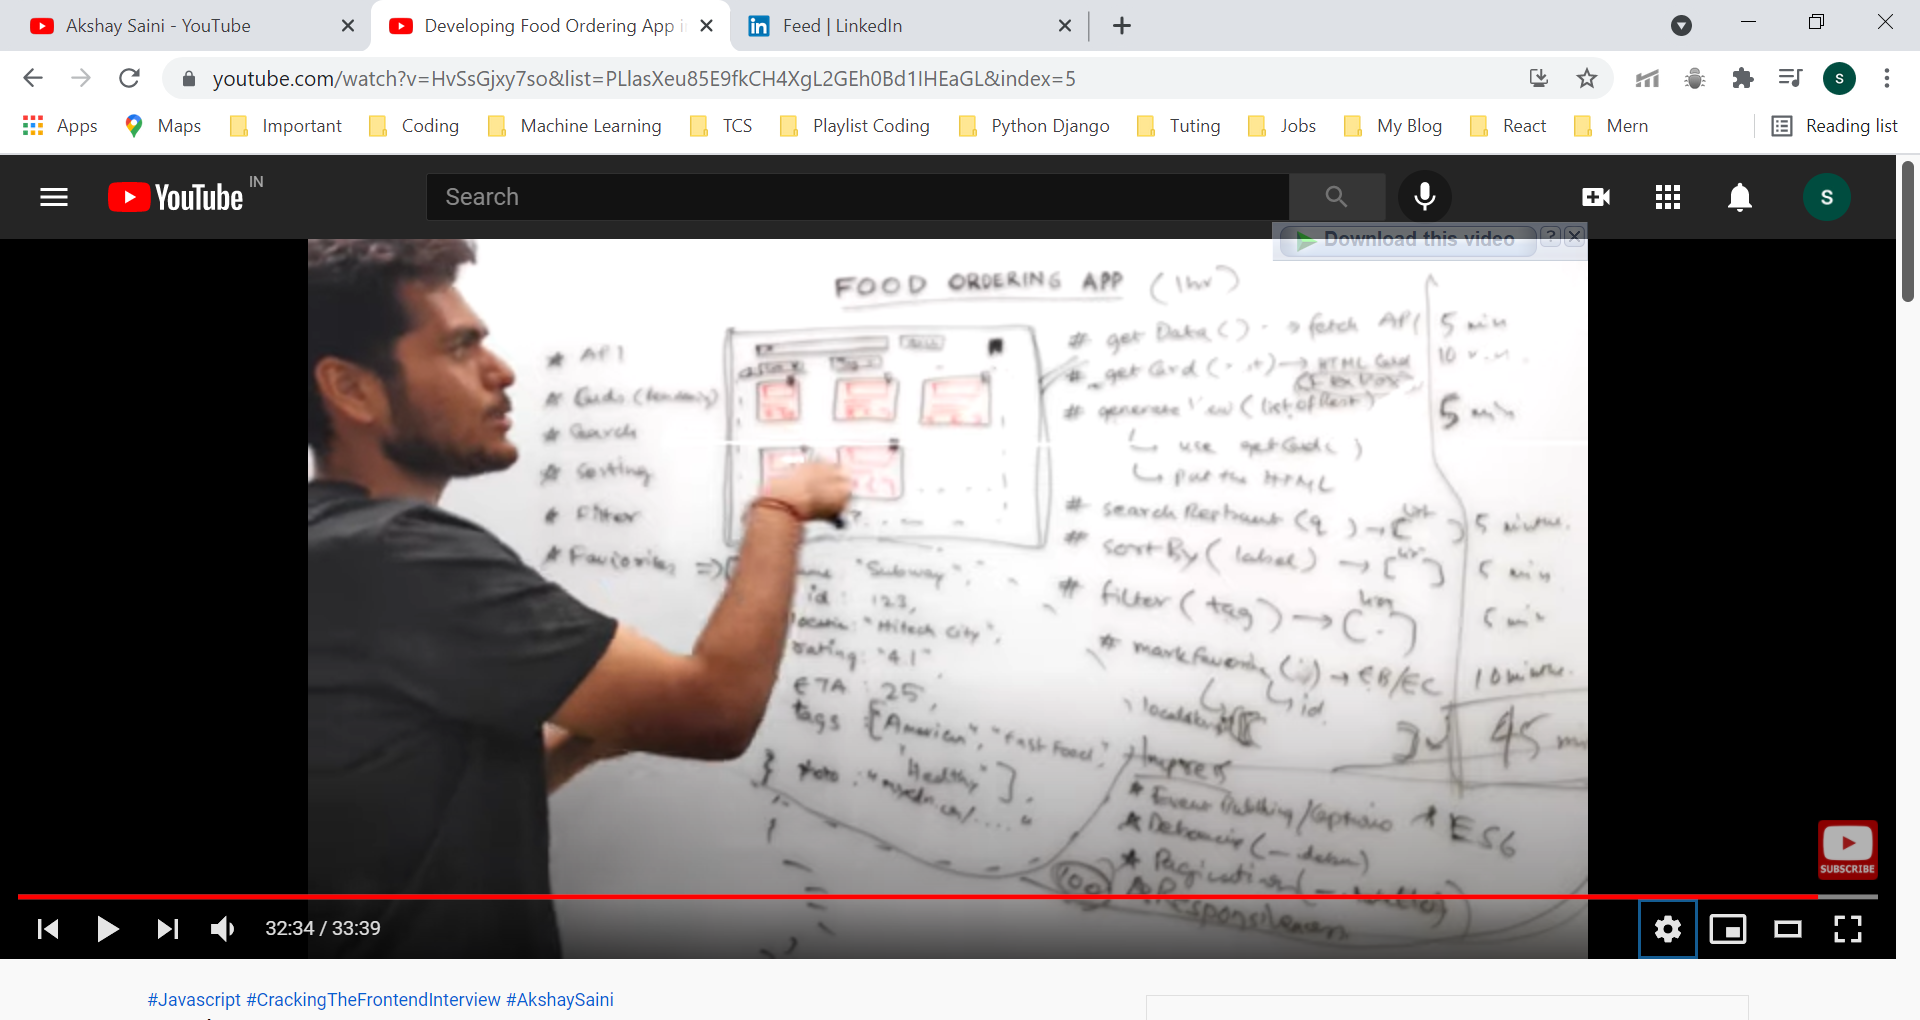 Akshay Saini - YouTube
Developing Food Ordering App i
Feed | LinkedIn
youtube.com/watch?v=HvSsGjxy7so&list=PLlasXeu85E9fkCH4XgL2GEh0Bd1IHEaGL&index=5
S
Apps
Maps
Important
Coding
Machine Learning
TCS
Playlist Coding
Python Django
Tuting
Jobs
My Blog
React
Mern
Reading list
YouTube IN
Search
S
Download this video
?
FOOD ORDERING APP (1hr)
* API
* Cards
* Search
* Sorting
* Filter
* Favorites =>
"Subway",
id : 123,
"Hitech City",
rating: "4.1"
ETA : 25,
tags ["American", "Fast Food",
"Healthy"],
# getData() → fetch API 5 min
# getCard( ) → HTML Card 10
# generateView (listOfRest) 5 min
↳ use getCard( )
↳ put the HTML
# searchRestraunt (q ) → [ list ] 5
# sortBy ( label ) → [ list ] 5 min
# filter ( tag ) → [ ] 5 min
# markFavorite ( ) → EB/EC 10
↳ id.
45
Impress
* Event Bubbling/Capturing * ES6
* Debouncing
* Pagination
100
* Responsiveness
SUBSCRIBE
32:34 / 33:39
#Javascript #CrackingTheFrontendInterview #AkshaySaini